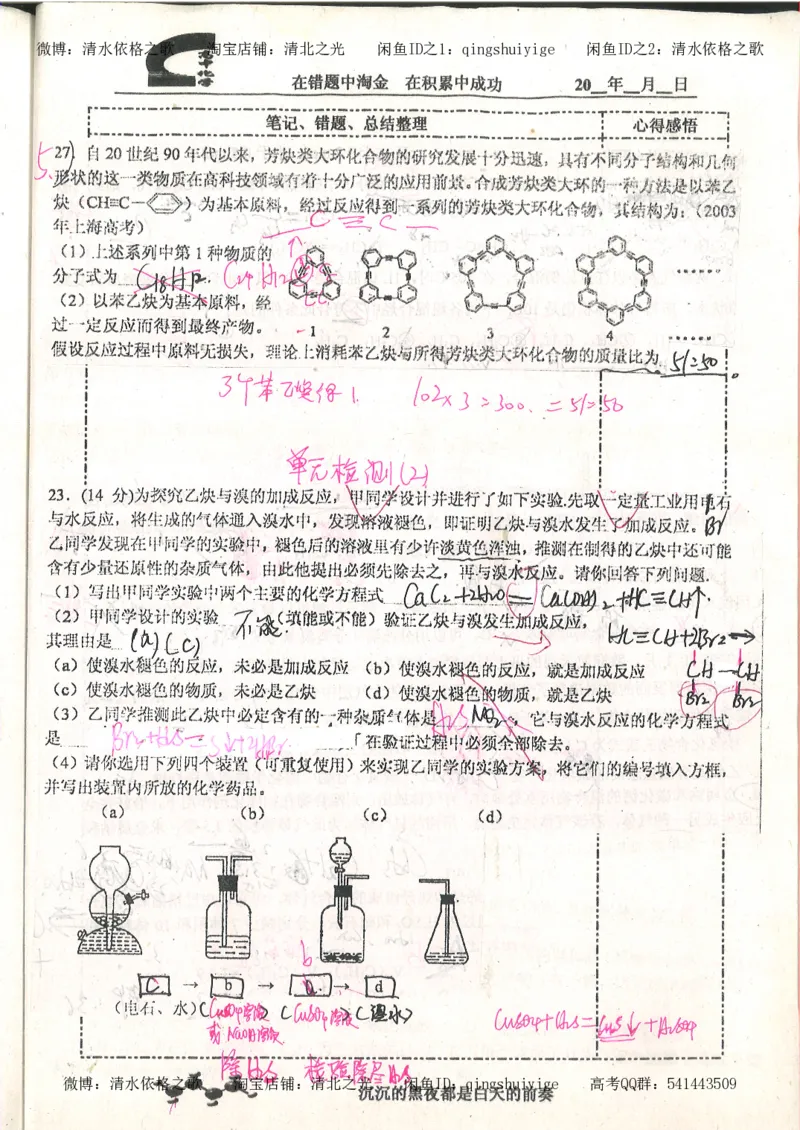 微博：清水依格之歌 淘宝店铺：清北之光 闲鱼ID之1：qingshuiyige 闲鱼ID之2：清水依格之歌
在错题中淘金 在积累中成功 20__年__月__日
笔记、错题、总结整理 心得感悟
27) 自 20 世纪 90 年代以来，芳炔类大环化合物的研究发展十分迅速，具有不同分子结构和几何
形状的这一类物质在高科技领域有着十分广泛的应用前景。合成芳炔类大环的一种方法是以苯乙
炔（CH≡C－）为基本原料，经过反应得到一系列的芳炔类大环化合物，其结构为：（2003
年上海高考）
— C ≡ C —
（1）上述系列中第 1 种物质的
分子式为 C18H12. C24H12
（2）以苯乙炔为基本原料，经
过一定反应而得到最终产物。
1 2 3 4
假设反应过程中原料无损失，理论上消耗苯乙炔与所得芳炔类大环化合物的质量比为 51=50 。
3个苯乙炔得1. 102×3=300. =51=50
单元检测(2)
23．(14 分)为探究乙炔与溴的加成反应，甲同学设计并进行了如下实验.先取一定量工业用电石
与水反应，将生成的气体通入溴水中，发现溶液褪色，即证明乙炔与溴水发生了加成反应。
Br
乙同学发现在甲同学的实验中，褪色后的溶液里有少许淡黄色浑浊，推测在制得的乙炔中还可能
含有少量还原性的杂质气体，由此他提出必须先除去之，再与溴水反应。请你回答下列问题.
（1）写出甲同学实验中两个主要的化学方程式 CaC2+2H2O=Ca(OH)2+HC≡CH↑.
（2）甲同学设计的实验 不能.（填能或不能）验证乙炔与溴发生加成反应，
HC≡CH+2Br2→
其理由是 (a)(c)
（a）使溴水褪色的反应，未必是加成反应 （b）使溴水褪色的反应，就是加成反应
CH—CH
（c）使溴水褪色的物质，未必是乙炔 （d）使溴水褪色的物质，就是乙炔
Br2 Br2
（3）乙同学推测此乙炔中必定含有的一种杂质气体是 H2S NO2 ，它与溴水反应的化学方程式
是 Br2+H2S=S↓+2HBr 「在验证过程中必须全部除去。
（4）请你选用下列四个装置（可重复使用）来实现乙同学的实验方案，将它们的编号填入方框，
并写出装置内所放的化学药品。
（a） （b） （c） （d）
b
C → b → a → d
（电石、水）(CuSO4溶液) (CuSO4溶液) (溴水)
或NaOH溶液
CuSO4+H2S=CuS↓+H2SO4
除H2S 检验除尽H2S
微博：清水依格之歌 淘宝店铺：清北之光 闲鱼ID：qingshuiyige 高考QQ群：541443509
沉沉的黑夜都是白天的前奏